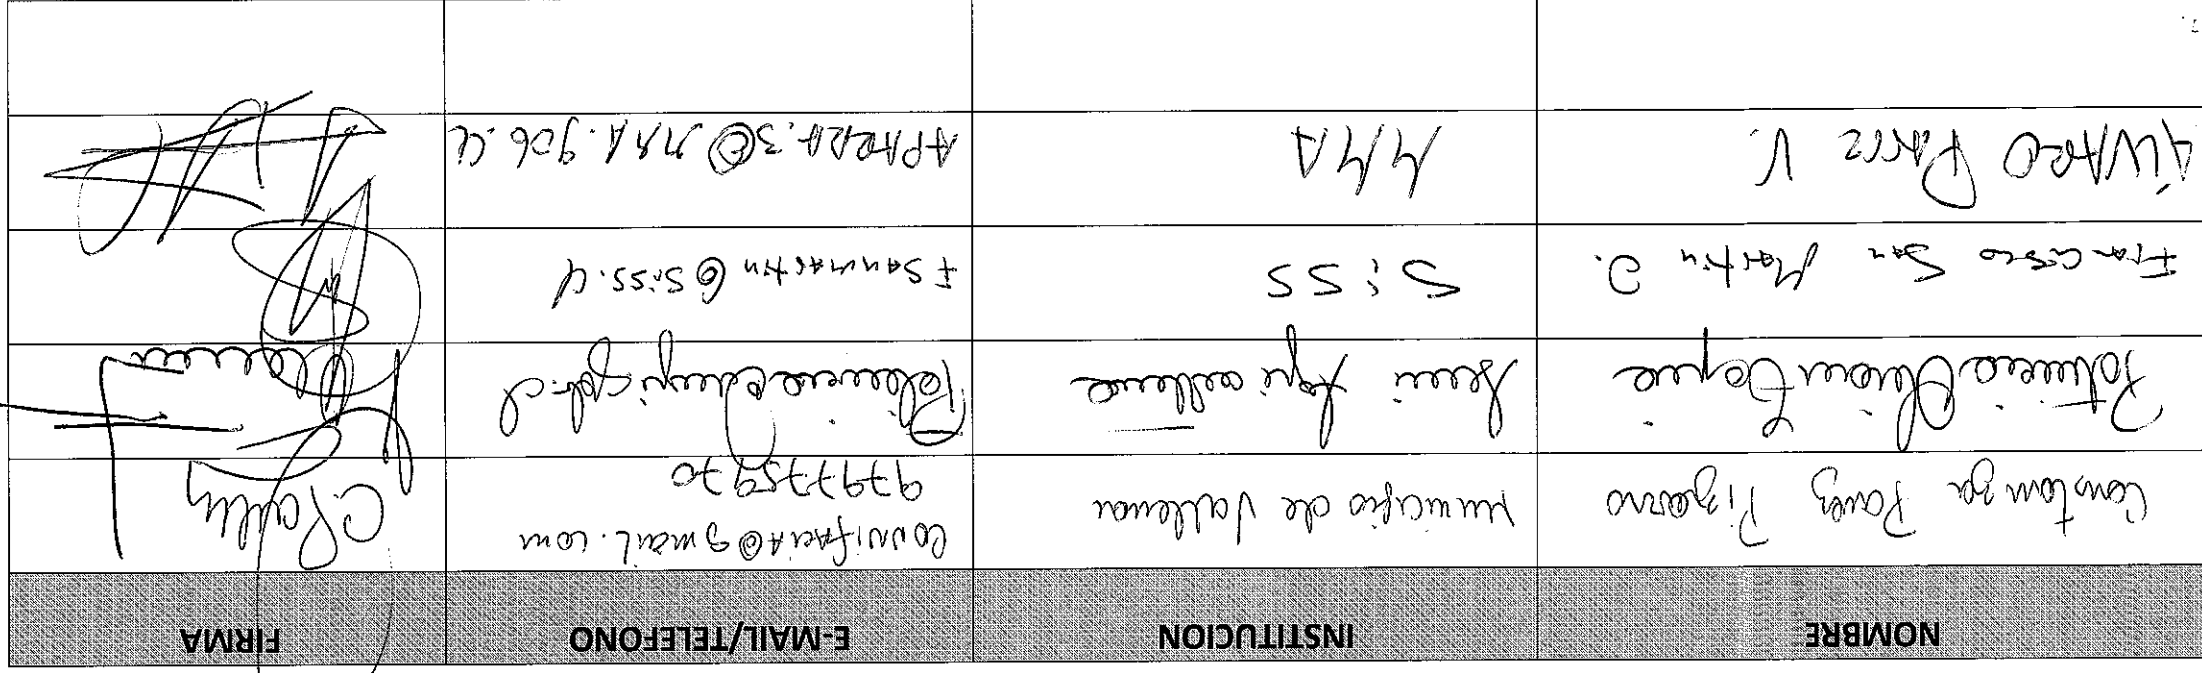 NOMBRE INSTITUCION E-MAIL/TELEFONO FIRMA
Constanza Pavez Pizarro municipio de Vallenar connifacia@gmail.com
979775970
Patricio Olivares Seremi Agricultura
Francisco San Martin O. SiSS fsanmartin@siss.cl
ALVARO PARRA V. MMA APARRA.3@MMA.gob.cl